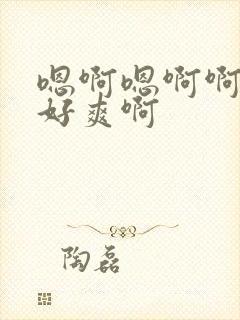 嗯啊嗯啊啊
好爽啊
陶磊